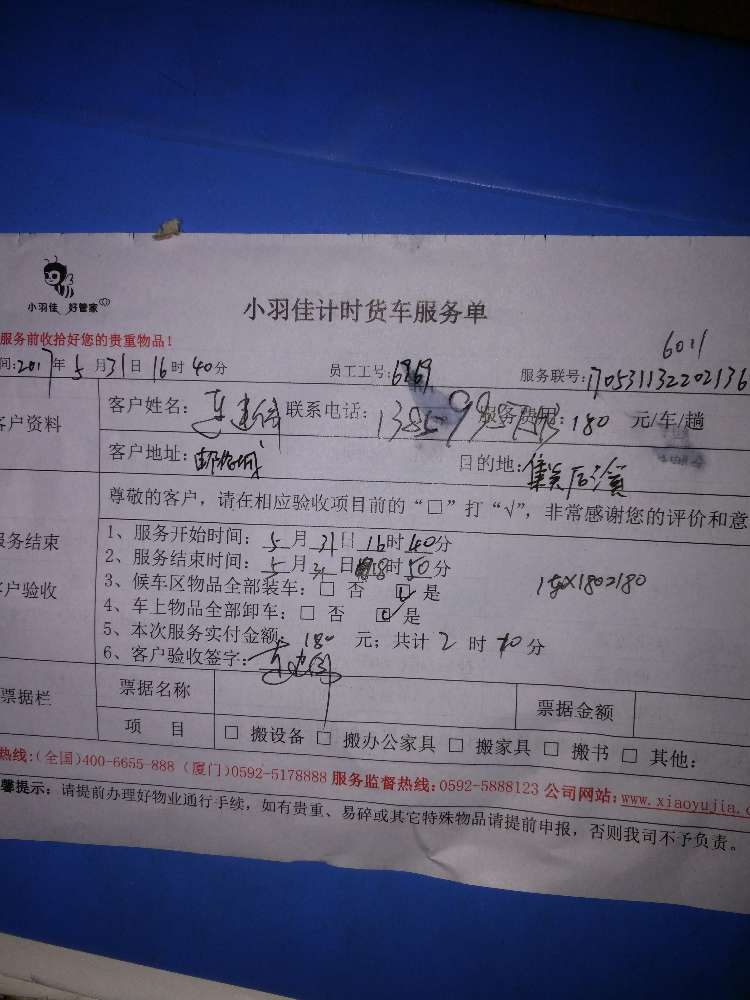 小羽佳 好管家
小羽佳计时货车服务单
服务前收拾好您的贵重物品！
6011
间:2017年5月31日16时40分 员工工号:6869 服务联号:170531132202136
客户资料
客户姓名: 联系电话: 服务费用: 180 元/车/趟
客户地址: 邮 城 目的地: 集美后溪
尊敬的客户，请在相应验收项目前的“□”打“√”，非常感谢您的评价和意
服务结束
客户验收
1、服务开始时间: 5月31日16时40分
2、服务结束时间: 5月31日18时50分
3、候车区物品全部装车: □ 否 ☑ 是
1趟×180=180
4、车上物品全部卸车: □ 否 ☑ 是
5、本次服务实付金额: 180 元; 共计 2 时 10 分
6、客户验收签字:
票据栏
票据名称 票据金额
项 目 □ 搬设备 □ 搬办公家具 □ 搬家具 □ 搬书 □ 其他:
热线:(全国)400-6655-888 (厦门)0592-5178888 服务监督热线: 0592-5888123 公司网站: www.xiaoyujia.c
馨提示: 请提前办理好物业通行手续，如有贵重、易碎或其它特殊物品请提前申报，否则我司不予负责。